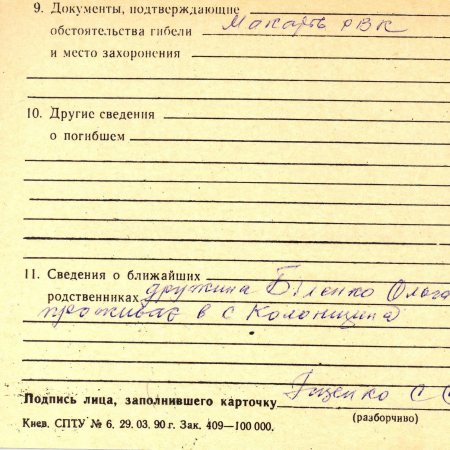 9. Документы, подтверждающие
обстоятельства гибели Макарів РВК
и место захоронения
10. Другие сведения
о погибшем
11. Сведения о ближайших
родственниках дружина Біленко Ольга
проживає в с Колонщина
Подпись лица, заполнившего карточку Іщенко С
(разборчиво)
Киев. СПТУ № 6. 29. 03. 90 г. Зак. 409—100 000.